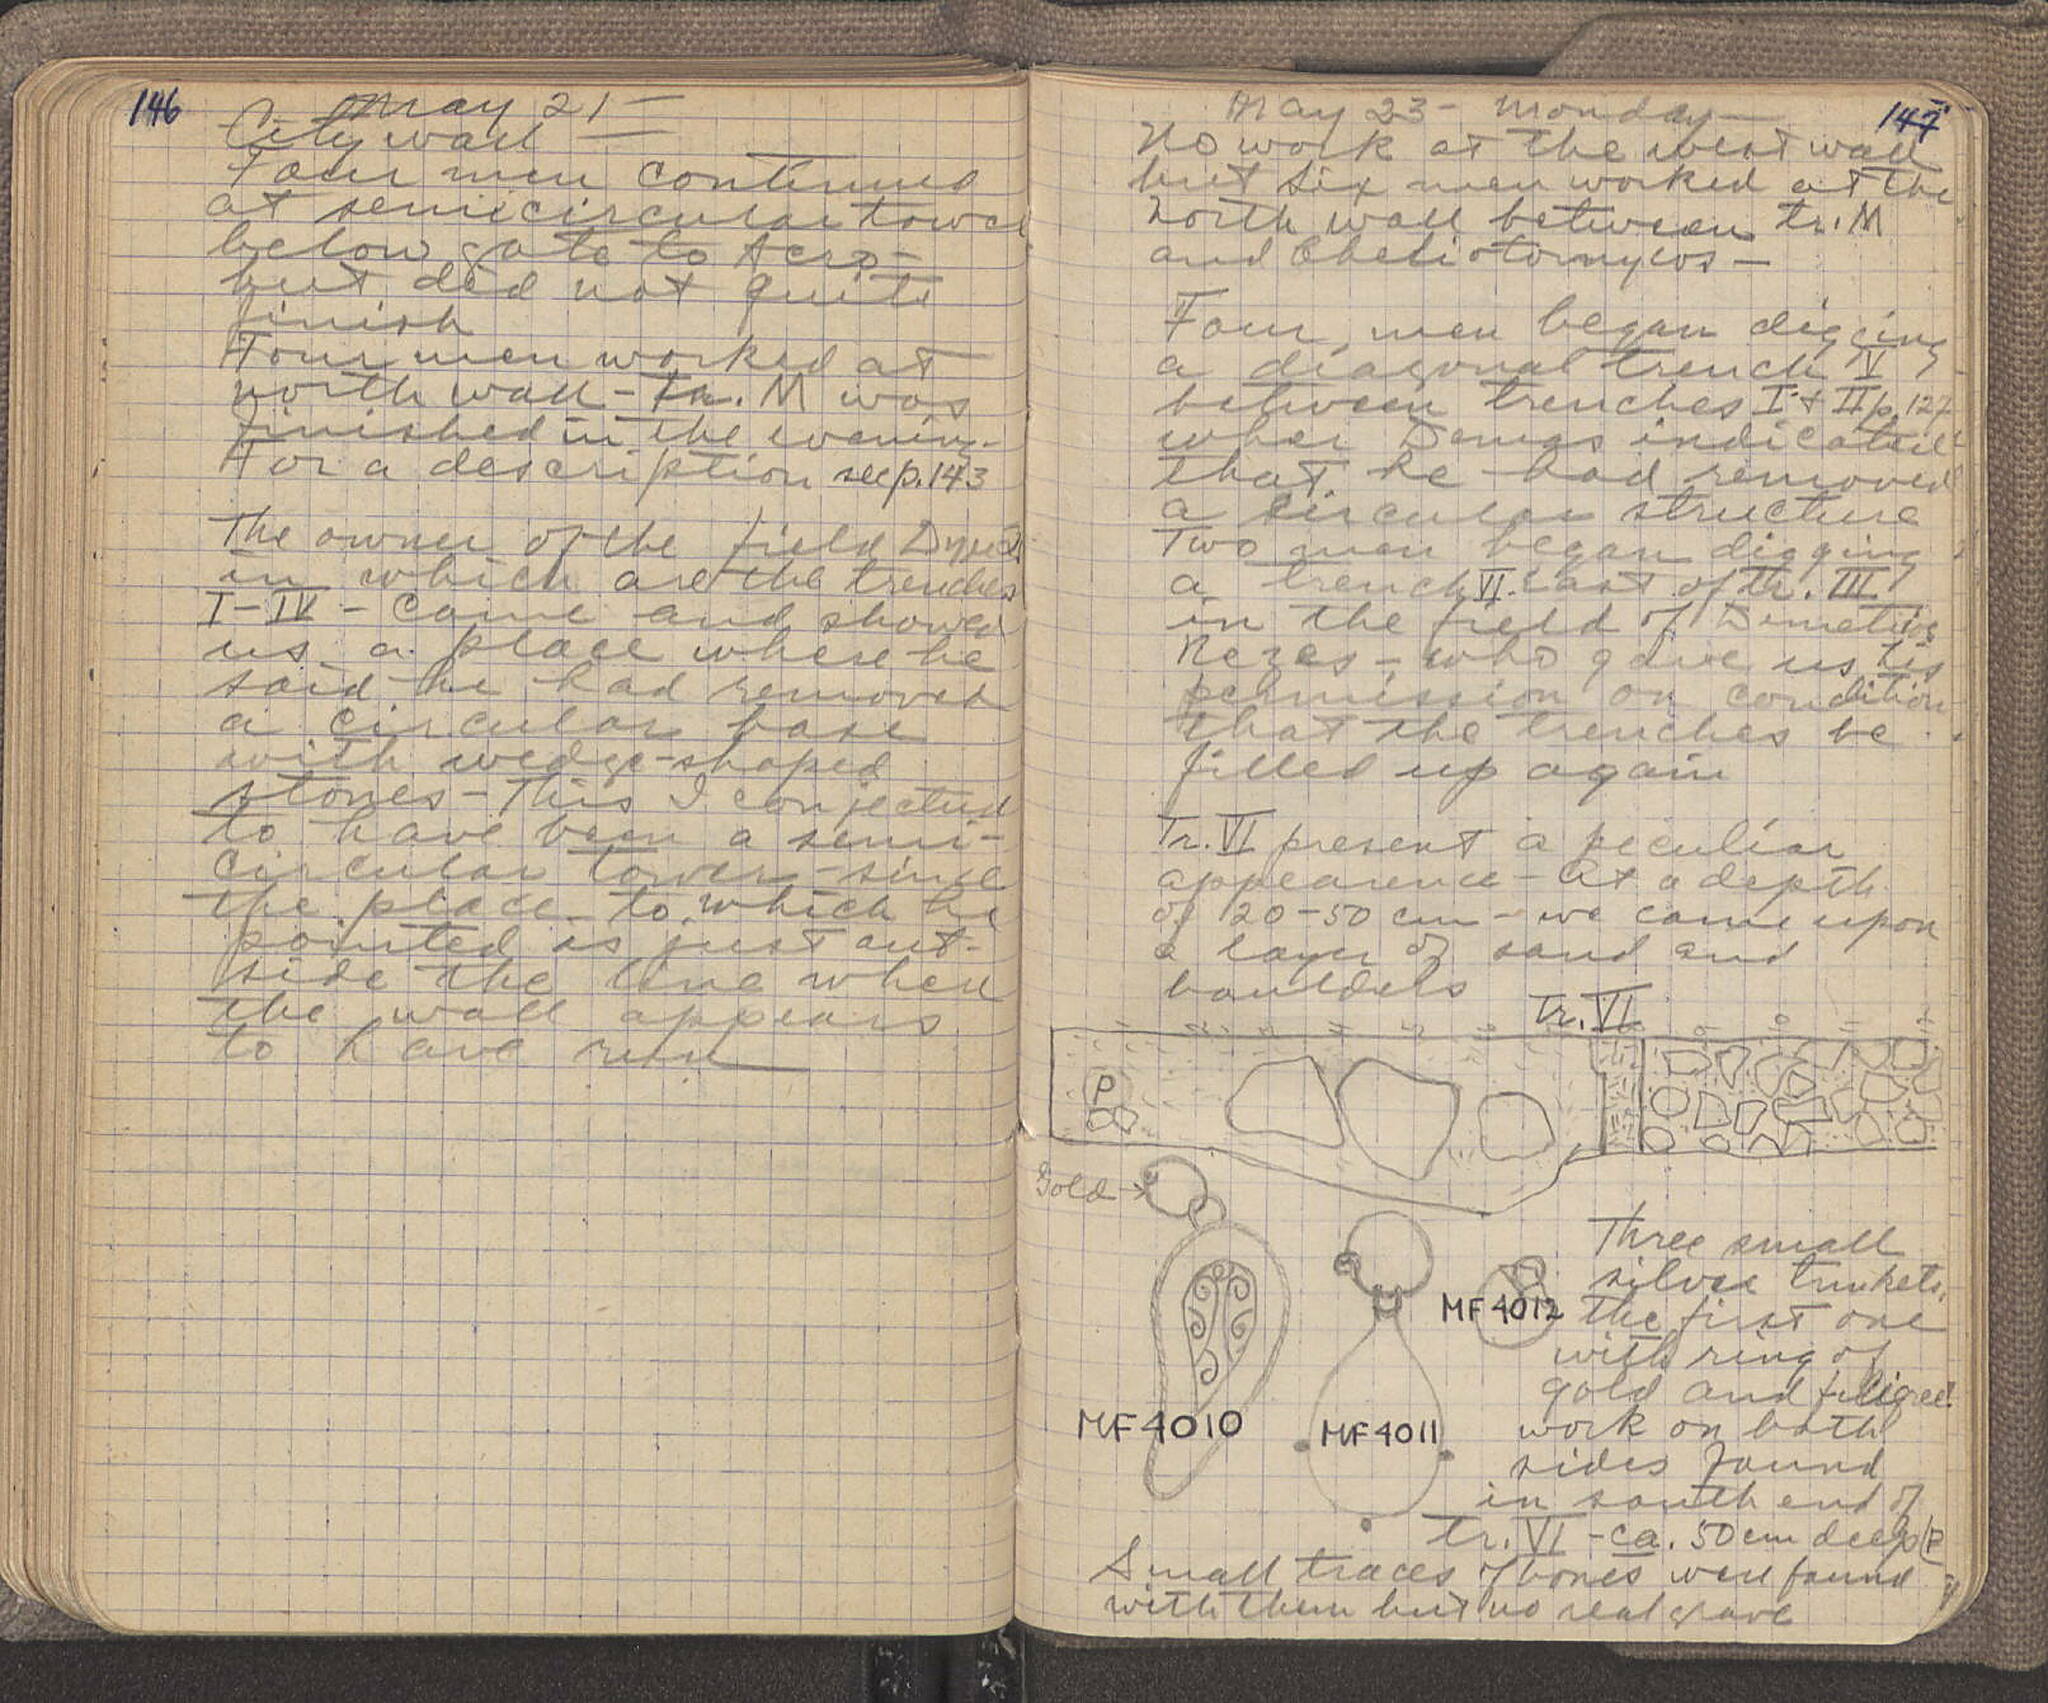 146
May 21 —
City wall —
Four men continued
at semicircular tower
below gate to Acro-
but did not quite
finish
Four men worked at
north wall - Tr. M was
finished in the evening -
For a description see p. 143
The owner of the field
in which are the trenches
I - IV - came and showed
us a place where he
said he had removed
a circular base
with wedge-shaped
stones - This I conjectured
to have been a semi-
circular tower - since
the place to which he
pointed is just out-
side the line where
the wall appears
to have run —
147
May 23 - Monday —
No work at the west wall
but six men worked at the
north wall between tr. M
and Cheliotomylos —
Four men began digging
a diagonal trench V
between trenches I + II p. 127
where indicated
that he had removed
a circular structure
Two men began digging
a trench VI east of tr. III
in the field of Demetrios
Rezes - who gave us his
permission on condition
that the trenches be
filled up again
Tr. VI present a peculiar
appearence - At a depth
of 20-50 cm - we came upon
a layer of sand and
boulders
Tr. VI
P
Gold
MF 4010
MF 4011
MF 4012
Three small
silver trinkets,
the first one
with ring of
gold and filigree
work on both
sides found
in south end of
tr. VI - ca. 50 cm deep (P
Small traces of bones were found
with them but no real grave